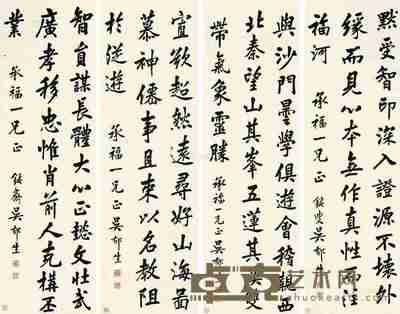 默受智印深入證源不壞外
緣而見心本無作真性而注
福河 承福一兄正 鈍叟吳郁生
與沙門曇學俱遊會稽觀西
北秦望山其峯五蓮其雙
帶氣象靈勝 承福一兄正 吳郁生
宜欲超然遠尋好山海啚
慕神僊事且束以名教阻
於從遊 承福一兄正 吳郁生
智員謀長體大心正懿文壯武
廣孝移忠惟肖前人克構丕
業 承福一兄正 鈍齋吳郁生